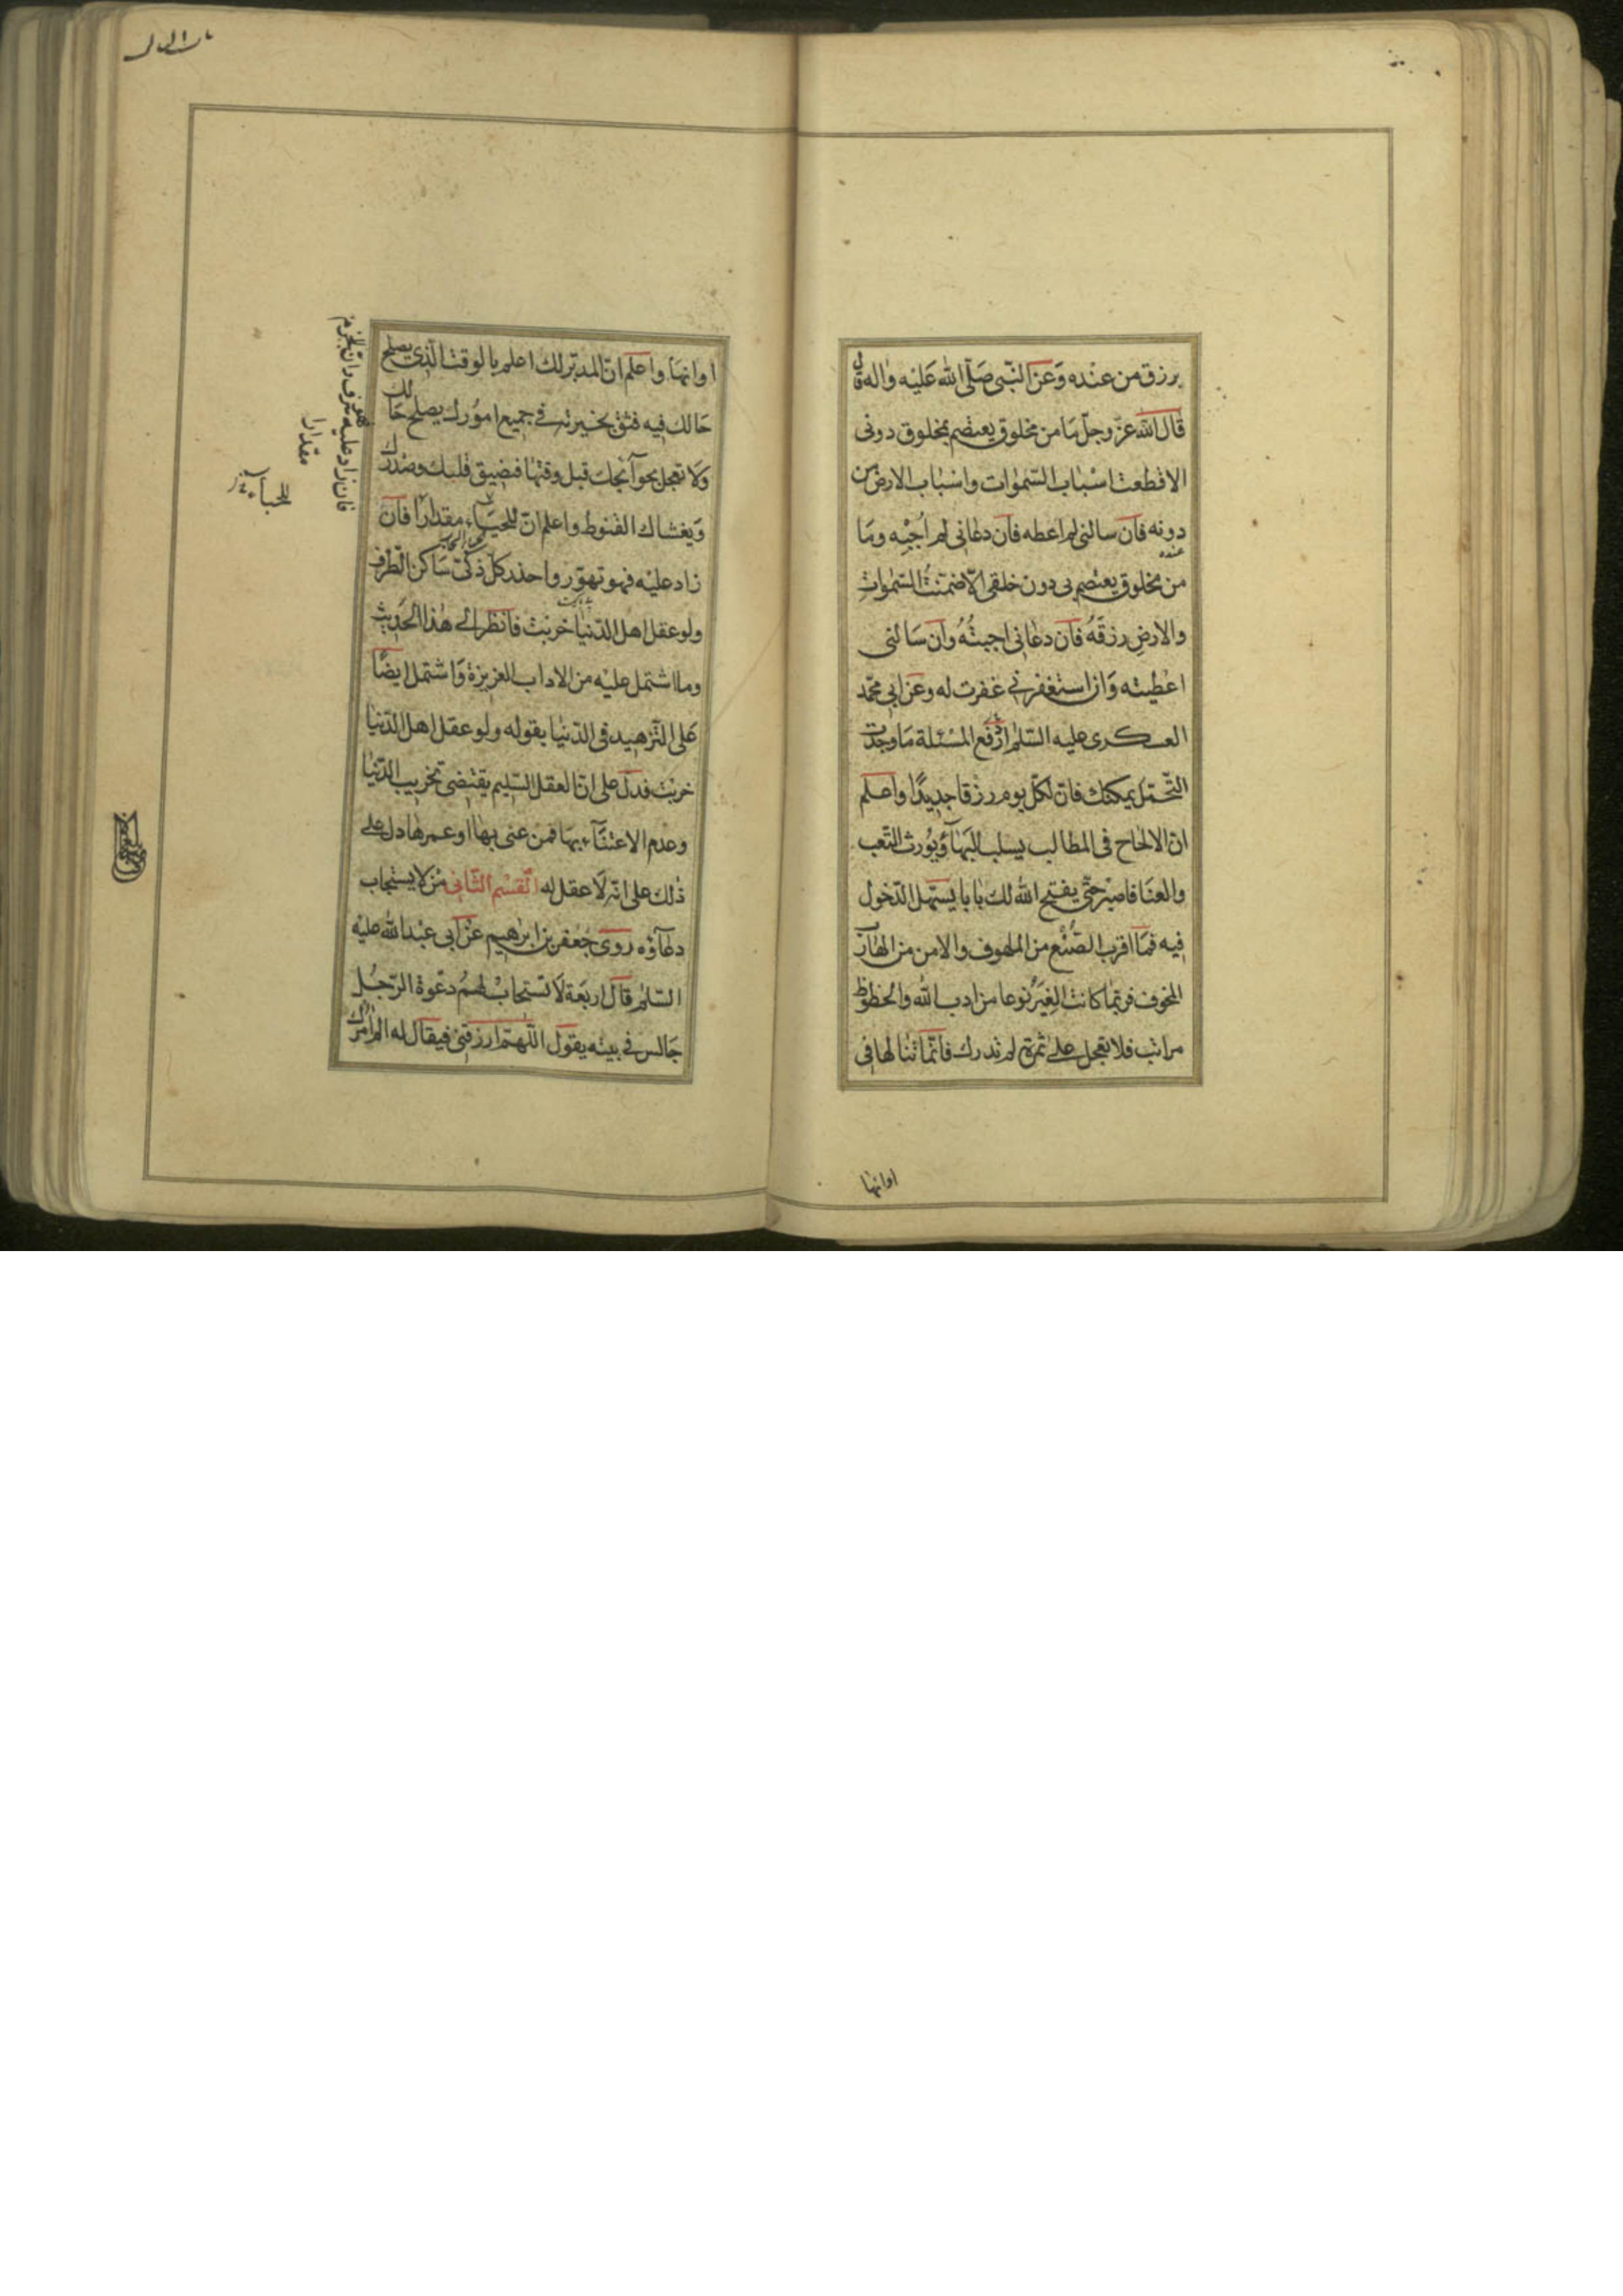 يرزق من عنده وَعن النّبى صَلّى اللّٰه عَليْه واٰله قال
قال اللّٰه عزّ وجلّ مَا من مخلوق يعتصم بمخلوق دونى
الا قطعت اسْبابَ السّمٰوات واسْبابَ الارض من
دونه فان سالنى لم اعطه فان دعانى لم اُجبْه ومَا
من مخلوق يعتصم بى دون خلقى الّا ضمّنتُ السّمٰواتِ
والارضِ رزقَهُ فان دعانى اجبتُهُ وان سَالنى
اعْطيته وَان استغفرنى غفرت له وعن ابى محمّد
العسكرى عليه السّلم ادْفع المسْئلة مَا وجدْت
التّحمّل يمكنك فانّ لكلّ يوم رزقا جديدًا واعلم
انّ الالحاح فى المطالب يسلب البَهآءَ ويُورث التّعب
والعنَا فاصبْر حتّى يفتح اللّٰه لك بابا يسَهّل الدّخول
فيه فمَا اقرب الصُّنْع من الملهوف والامن من الهارب
المخوف فربّما كانت الغِيَرُ نوعا من ادب اللّٰه والحظوظ
مراتب فلا تعجل على ثمرة لم تدرك فانّما تنالها فى
اوانها
اوانهَا واعلم انّ المدبّر لك اعلم بالوقت الّذى يصلح
حَالك فيه فثق بخيرته فى جميع امُورك يصلح حَالك
وَلا تعجل بحوآئجك قبل وقتها فيضيق قلبك وصَدرك
وَيغشاك القنوط واعلم انّ للحيَآء مقدارًا فان
زاد عليْه فهو تهوّر واحذر كلّ ذكىّ سَاكن الطّرف
ولو عقل اهل الدّنيٰا خربَتْ فانظر الى هٰذا الحَديث
وما اشتمل عليْه من الاداب العزيزة وَاشتمل ايضًا
عَلى التّزهيد فى الدّنيا بقوله ولو عقل اهل الدّنيا
خربَتْ فدلّ على انّ العقل السّليم يقتضى تخريب الدّنيا
وعدم الاعتنآء بهَا فمن عنى بهٰا او عمرها دل على
ذٰلك على انّه لَا عقل له القسْم الثّانى مَنْ لا يسْتجاب
دعآؤه روى جَعفر بن ابرٰهيم عَنْ ابى عَبْد اللّٰه عليْه
السّلم قال اربَعة لَا تسْتجابْ لهمُ دعْوة الرّجُل
جَالس فى بيته يقول اللّٰهمّ ارزقنى فيقال له الم اٰمرك
فان زاد عليه فهو سرف وان للحزم
مقدارا